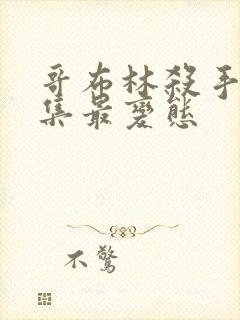 哥布林殺手
集最變態
不驚